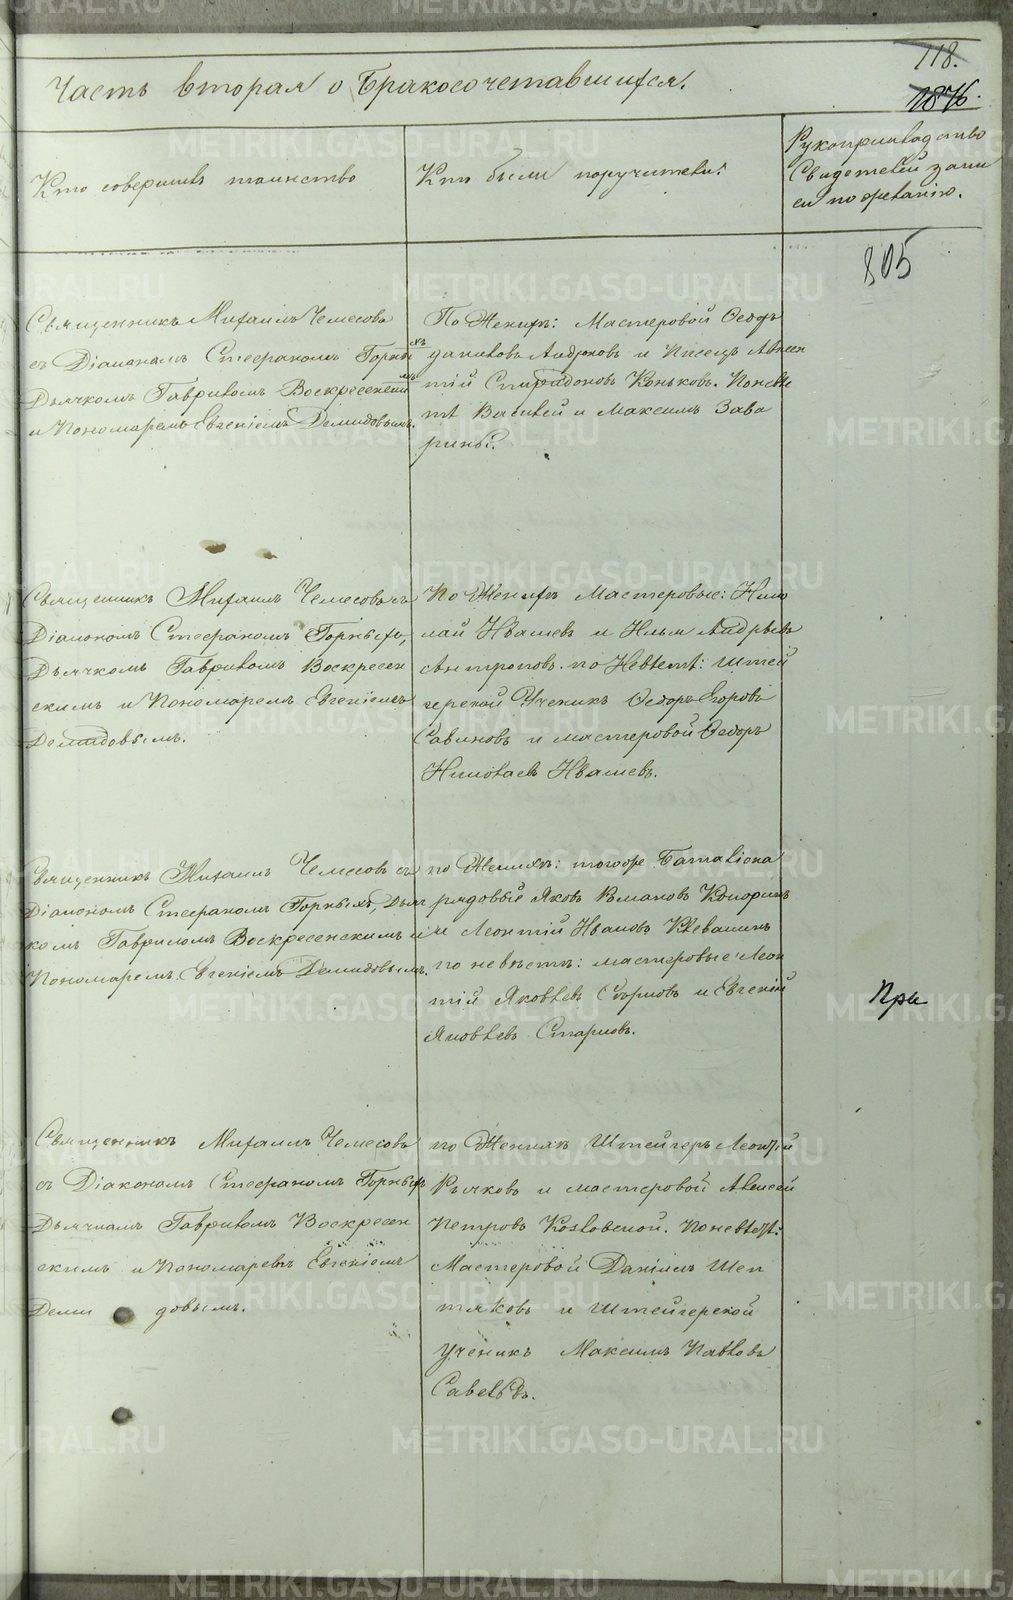 118.
1876.
Часть вторая о Бракосочетавшихся.
Кто совершилъ таинство
Кто были поручители:
Рукоприкладство
Свидетелей запи
си по желанію.
805
Священникъ Михаилъ Чемесовъ
съ Діакономъ Стефаномъ Горныхъ
Дьячкомъ Гавриломъ Воскресенскимъ
и Пономаремъ Евгеніемъ Демидовымъ.
По Женихѣ: Мастеровой Ѳеодъ
и Писецъ Авксен
тій Спиридоновъ Коньковъ. Поневѣс
тѣ Василей и Максимъ Зава
рины.
Священникъ Михаилъ Чемесовъ съ
Діакономъ Стефаномъ Горныхъ,
Дьячкомъ Гавриломъ Воскресен
скимъ и Пономаремъ Евгеніемъ
Демидовымъ.
По Женихѣ Мастеровые: Нико
лай Ивашевъ и Илья Андрѣевъ
Антроповъ. по Невѣстѣ: Штей
герской Ученикъ Ѳедоръ Егоровъ
Савиновъ и мастеровой Ѳедоръ
Николаевъ Ивашевъ.
Священникъ Михаилъ Чемесовъ съ
Діакономъ Стефаномъ Горныхъ, Дьяч
комъ Гавриломъ Воскресенскимъ и
Пономаремъ Евгеніемъ Демидовымъ.
по Женихѣ: тогоже Баталіона
рядовый Яковъ Романовъ
и Леонтій Ивановъ
по невѣстѣ: мастеровые Леон
тій Яковлевъ и Евгеній
Яковлевъ Старковъ.
При
Священникъ Михаилъ Чемесовъ
съ Діакономъ Стефаномъ Горныхъ
Дьячкомъ Гавриломъ Воскресен
скимъ и Пономаремъ Евгеніемъ
Деми довымъ.
по Женихѣ Штейгеръ Леонтій
Рычковъ и мастеровой Алексей
Петровъ Козловской. Поневѣстѣ:
Мастеровой Даніилъ Шеп
талковъ и Штейгерской
Ученикъ Максимъ Павловъ
METRIKI.GASO-URAL.RU